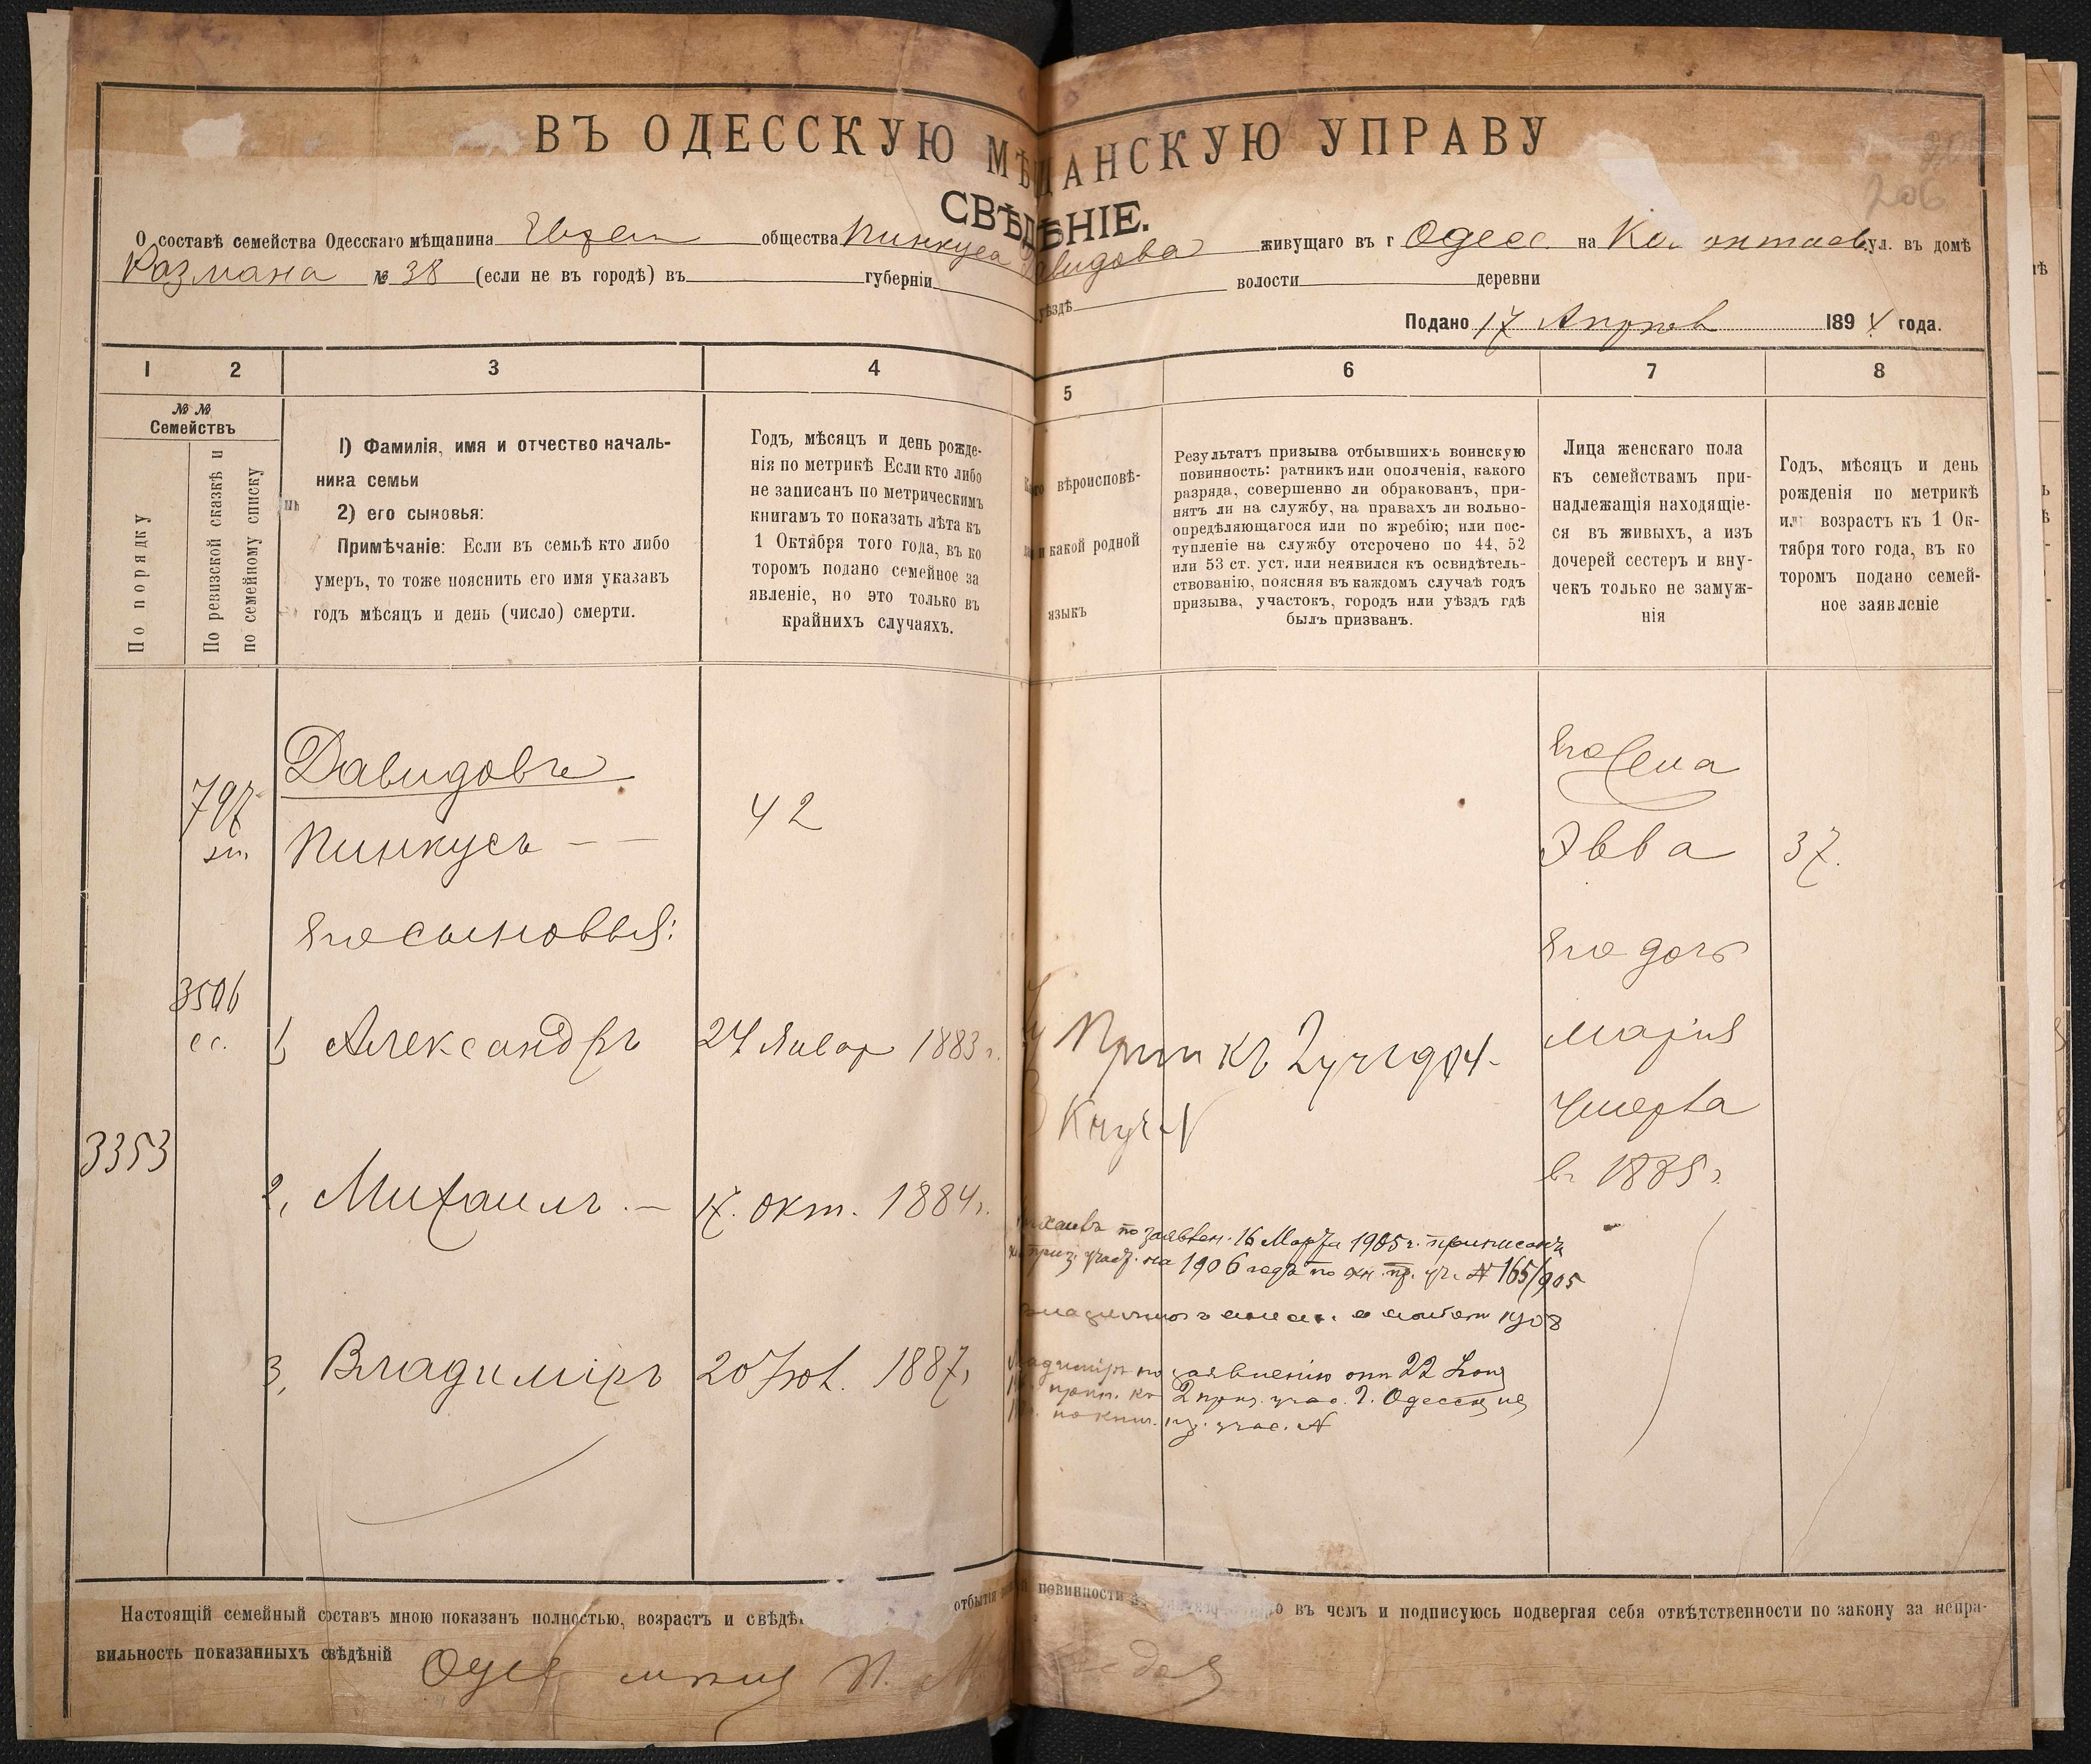 ВЪ ОДЕССКУЮ МѢЩАНСКУЮ УПРАВУ
СВѢДѢНІЕ.
206
О составѣ семейства Одесскаго мѣщанина общества Пинкуса Давидова живущаго въ г Одесс. на ул. въ домѣ
№ 38 (если не въ городѣ) въ губерніи уѣздѣ волости деревни
Подано 17 189 года.
1 2 3 4 5 6 7 8
№ №
Семействъ
По порядку
По ревизской сказкѣ и
по семейному списку
1) Фамилія, имя и отчество началь-
ника семьи
2) его сыновья:
Примѣчаніе: Если въ семьѣ кто либо
умеръ, то тоже пояснить его имя указавъ
годъ мѣсяцъ и день (число) смерти.
Годъ, мѣсяцъ и день рожде-
нія по метрикѣ Если кто либо
не записанъ по метрическимъ
книгамъ то показать лѣта къ
1 Октября того года, въ ко
торомъ подано семейное за
явленіе, но это только въ
крайнихъ случаяхъ.
вѣроисповѣ-
и какой родной
языкъ
Результатъ призыва отбывшихъ воинскую
повинность: ратникъ или ополченія, какого
разряда, совершенно ли обракованъ, при-
нятъ ли на службу, на правахъ ли вольно-
опредѣляющагося или по жребію; или пос-
тупленіе на службу отсрочено по 44, 52
или 53 ст. уст. или неявился къ освидѣтель-
ствованію, поясняя въ каждомъ случаѣ годъ
призыва, участокъ, городъ или уѣздъ гдѣ
былъ призванъ.
Лица женскаго пола
къ семействамъ при-
надлежащія находящіе-
ся въ живыхъ, а изъ
дочерей сестеръ и вну-
чекъ только не замуж-
нія
Годъ, мѣсяцъ и день
рожденія по метрикѣ
или возрастъ къ 1 Ок-
тября того года, въ ко
торомъ подано семей-
ное заявленіе
Давидовъ
797
Пинкусъ — — 42
Его жена
Эвва 37.
Его сыновья:
Его дочь
3506
1, Александръ 24 Январ 1883 г.
Прип къ 2 уч 1904
Марія
Умерла
в 1885 г.
3353
2, Михаилъ. — 17. окт. 1884 г.
по заявлен. 16 Марта 1905 г. приписанъ
приз. участ. на 1906 годъ по кн. пр. уч. № 165/905
1908
3, Владиміръ 20 Нов. 1887,
Владиміръ по заявленію отъ 22
прип. къ 2 приз. учас. г. Одессы на
учас. №
Настоящій семейный составъ мною показанъ полностью, возрастъ и свѣдѣ отбытія повинности въ чемъ и подписуюсь подвергая себя отвѣтственности по закону за непра-
вильность показанныхъ свѣдѣній